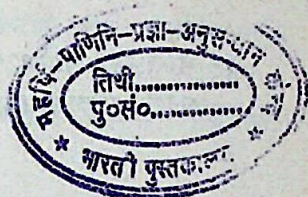 महर्षि-पाणिनि-प्रज्ञा-अनुसन्धान केन्द्र
तिथी................
पु०सं०................
* भारती पुस्तकालय *